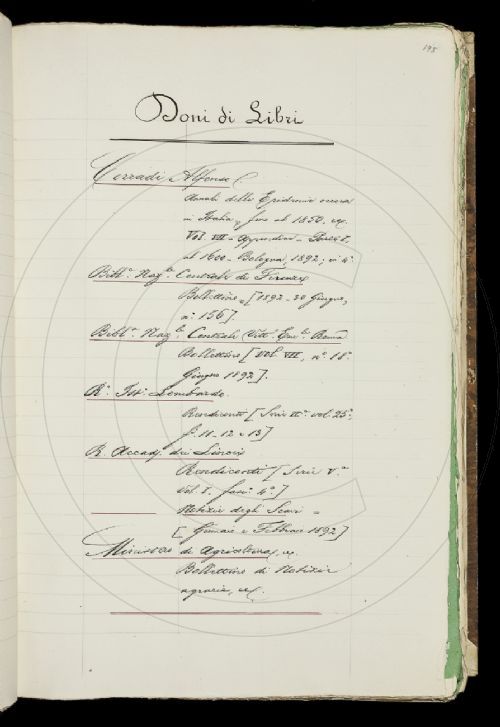 195
Doni di Libri
Corradi Alfonso
Annali delle Epidemie occorse
in Italia, fino al 1850, ec.
Vol. VII - Appendice - Parte I.
al 1600 - Bologna, 1892; in 4°.
Bibl.ª Naz.le Centrale di Firenze
Bollettino, [1892 - 30 Giugno,
n.° 156].
Bibl.ª Naz.le Centrale Vitt.º Em.le Roma
Bollettino [Vol. VII, n.° 18°
Giugno 1892].
R.º Ist.º Lombardo.
Rendiconti [Serie II.ª vol. 25°,
f. 11 - 12 e 13]
R. Accad. dei Lincei
Rendiconti [Serie V.ª
Vol. I. fasc. 4°.]
Notizie degli Scavi -
[Gennaio e Febbraio 1892]
Ministero di Agricoltura, ec.
Bollettino di Notizie
agrarie, ec.